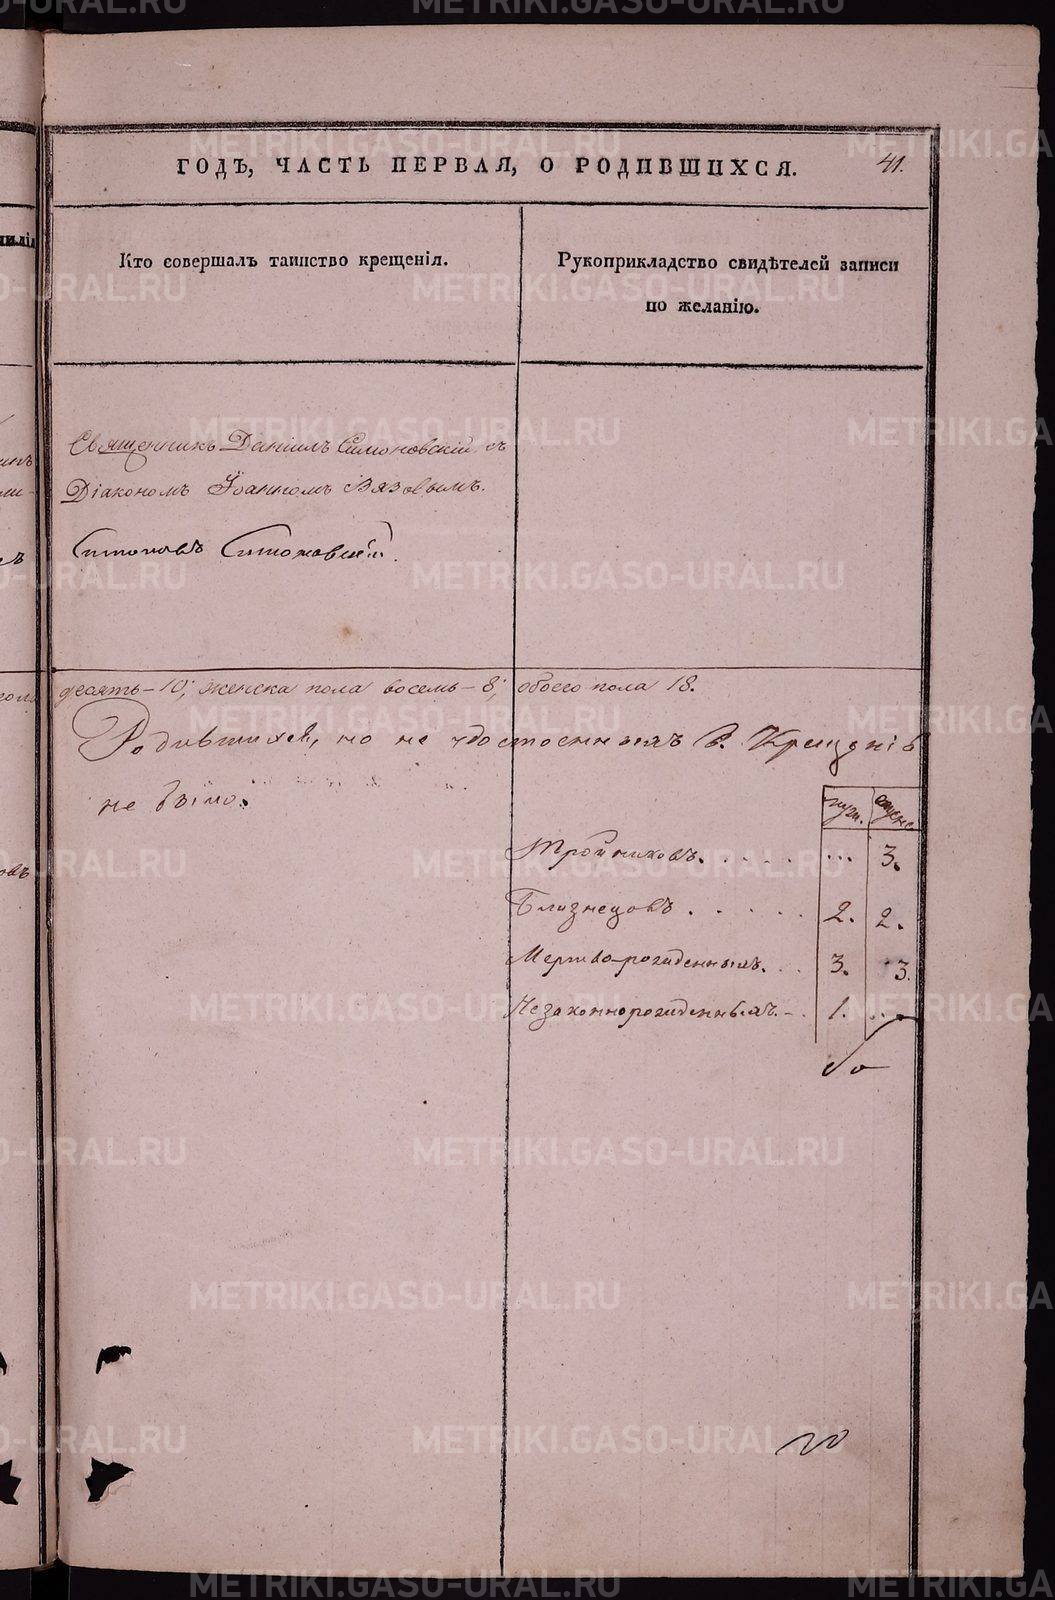 ГОДЪ, ЧАСТЬ ПЕРВАЯ, О РОДИВШИХСЯ.
41.
Кто совершалъ таинство крещенія.
Рукоприкладство свидѣтелей записи
по желанію.
Священникъ Даніилъ Симоновскій съ
Діакономъ Іоанномъ Вязовымъ.
Симоновскій.
десять - 10; женска пола восемь - 8; обоего пола 18.
Родившихся, но не удостоенныхъ С. Крещенія
не было.
муж. женс.
Тройниковъ. . . . . . ... 3.
Близнецовъ . . . . . 2. 2.
Мертво-рожденныхъ. . . 3. 3.
Незаконнорожденныхъ. - . 1. ..
METRIKI.GASO-URAL.RU